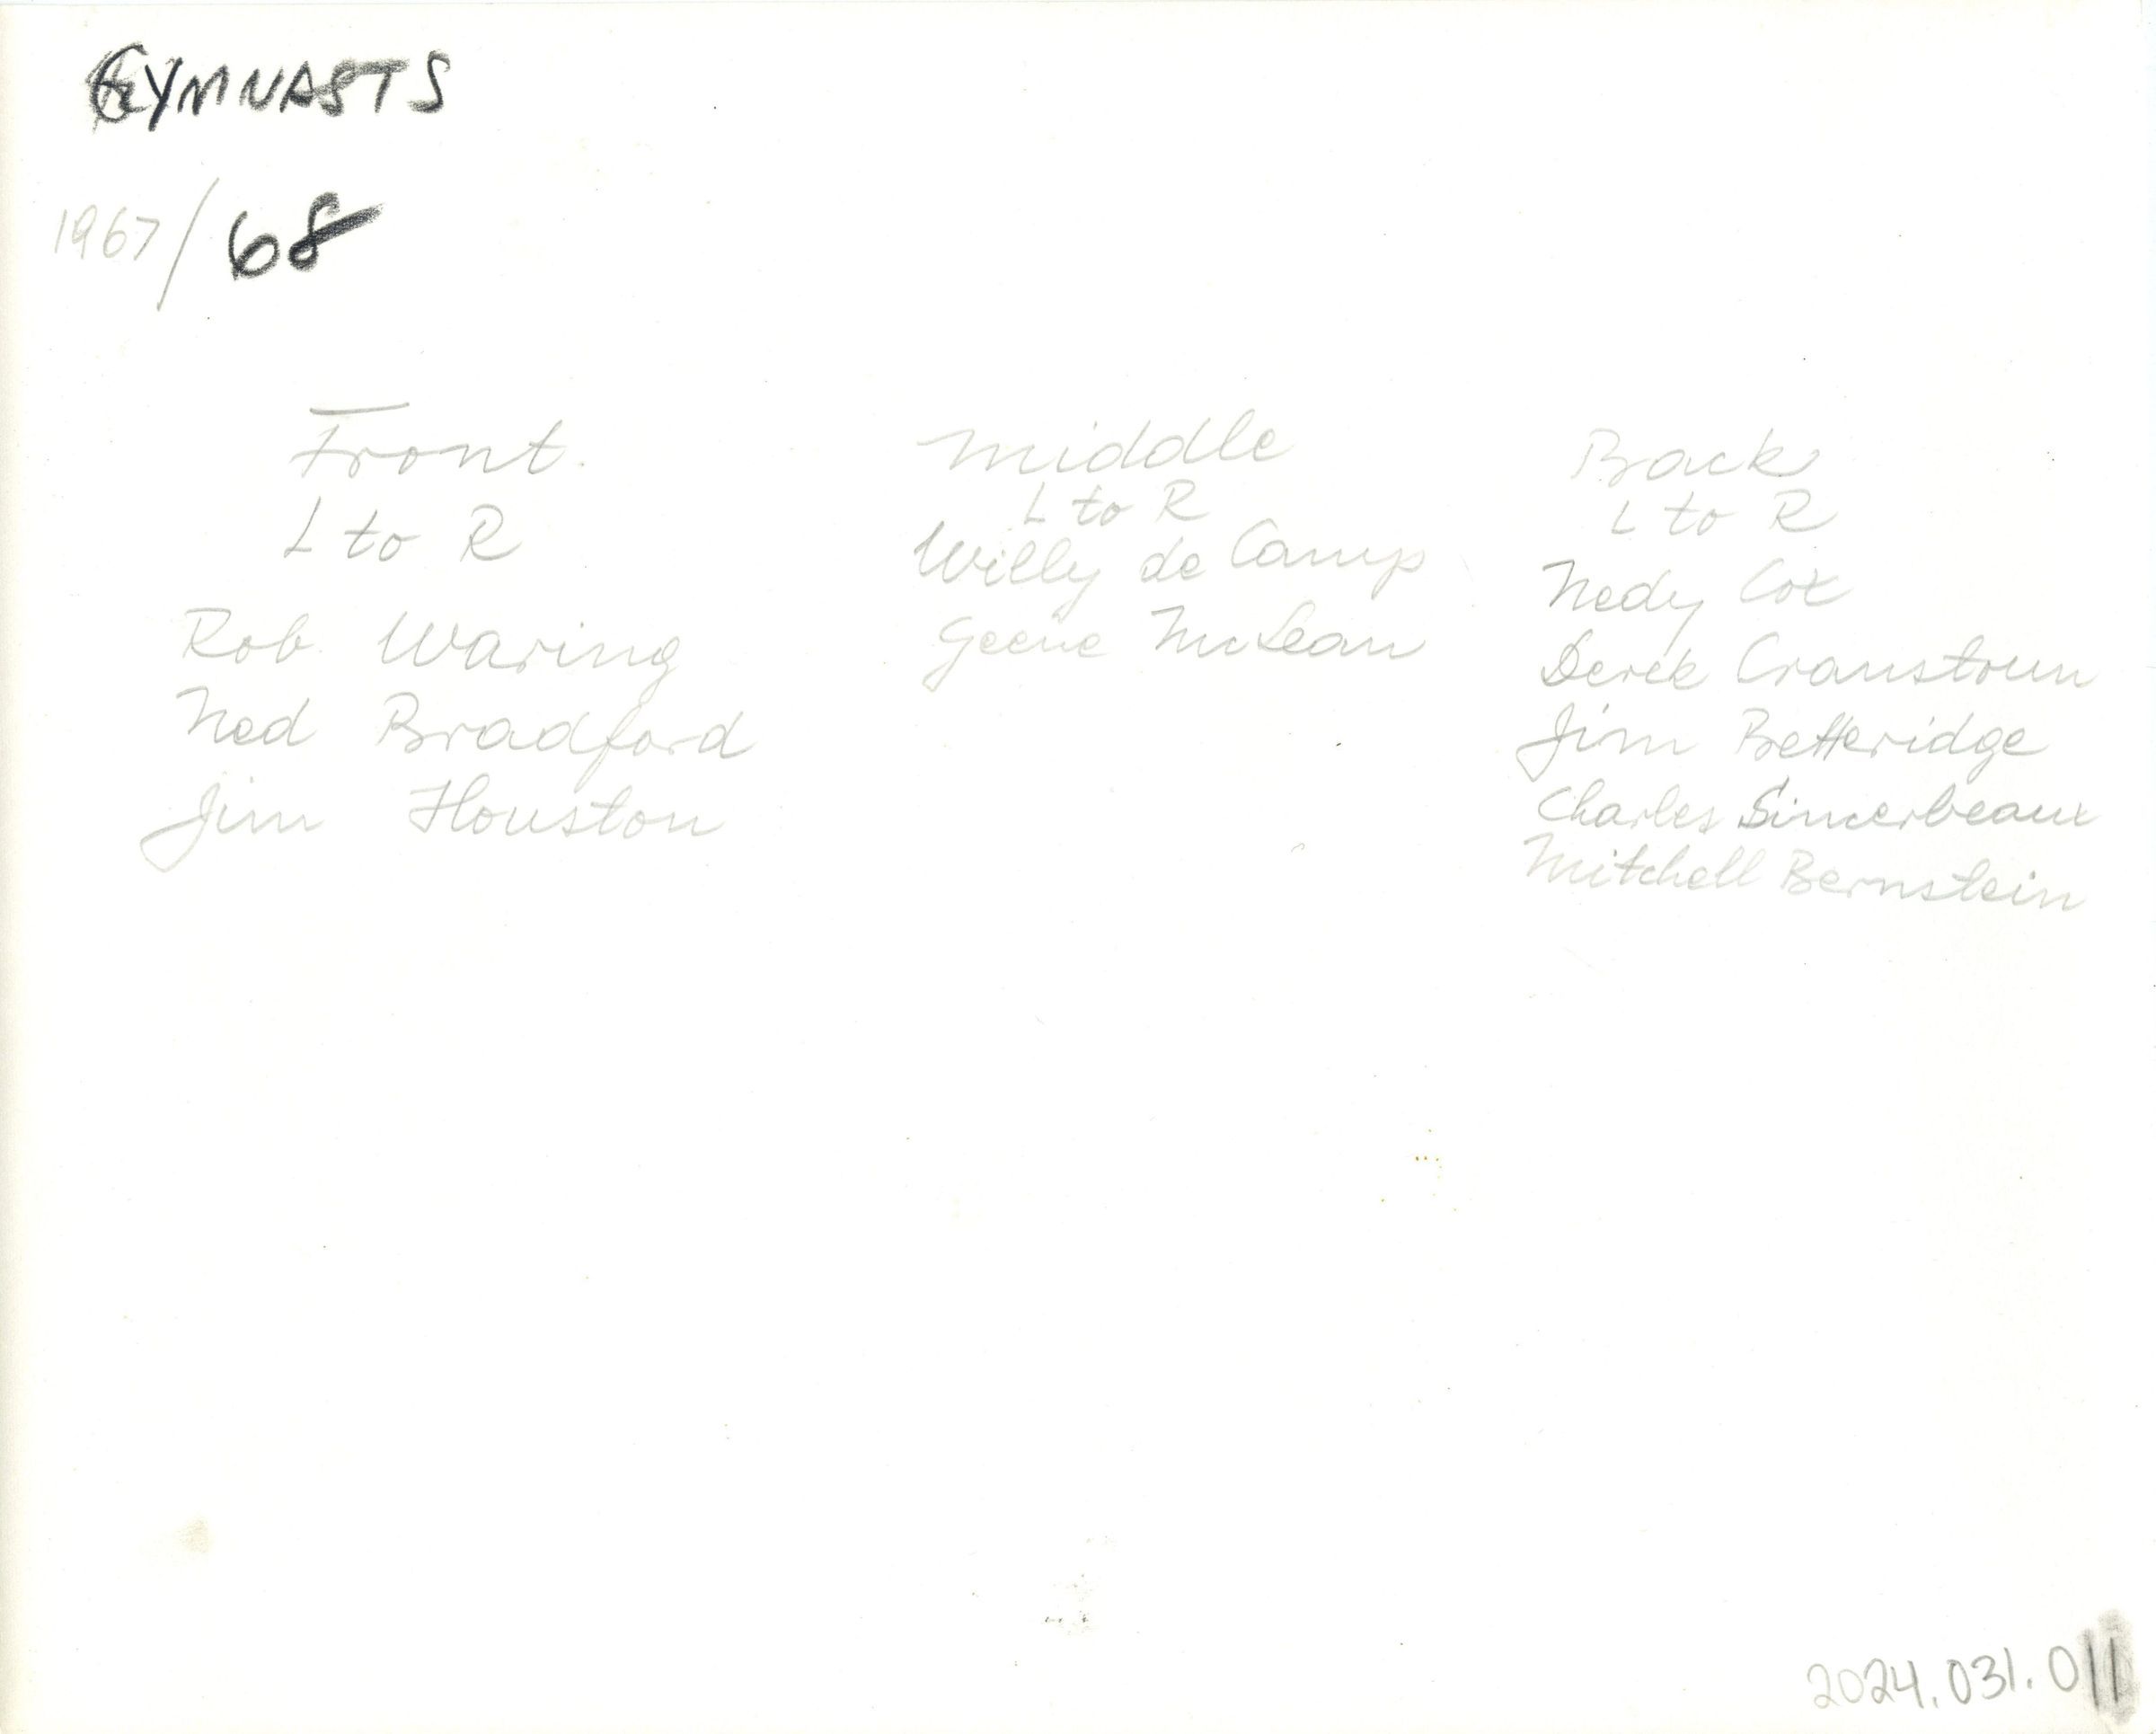 GYMNASTS
1967/68
Front.
L to R
Rob Waring
Ned Bradford
Jim Houston
Middle
L to R
Willy de Camp
Geene McLean
Back
L to R
Nedy Cox
Derek Cranstoun
Jim Betteridge
Charles Simerbeaux
Mitchell Bernstein
2024.031.011